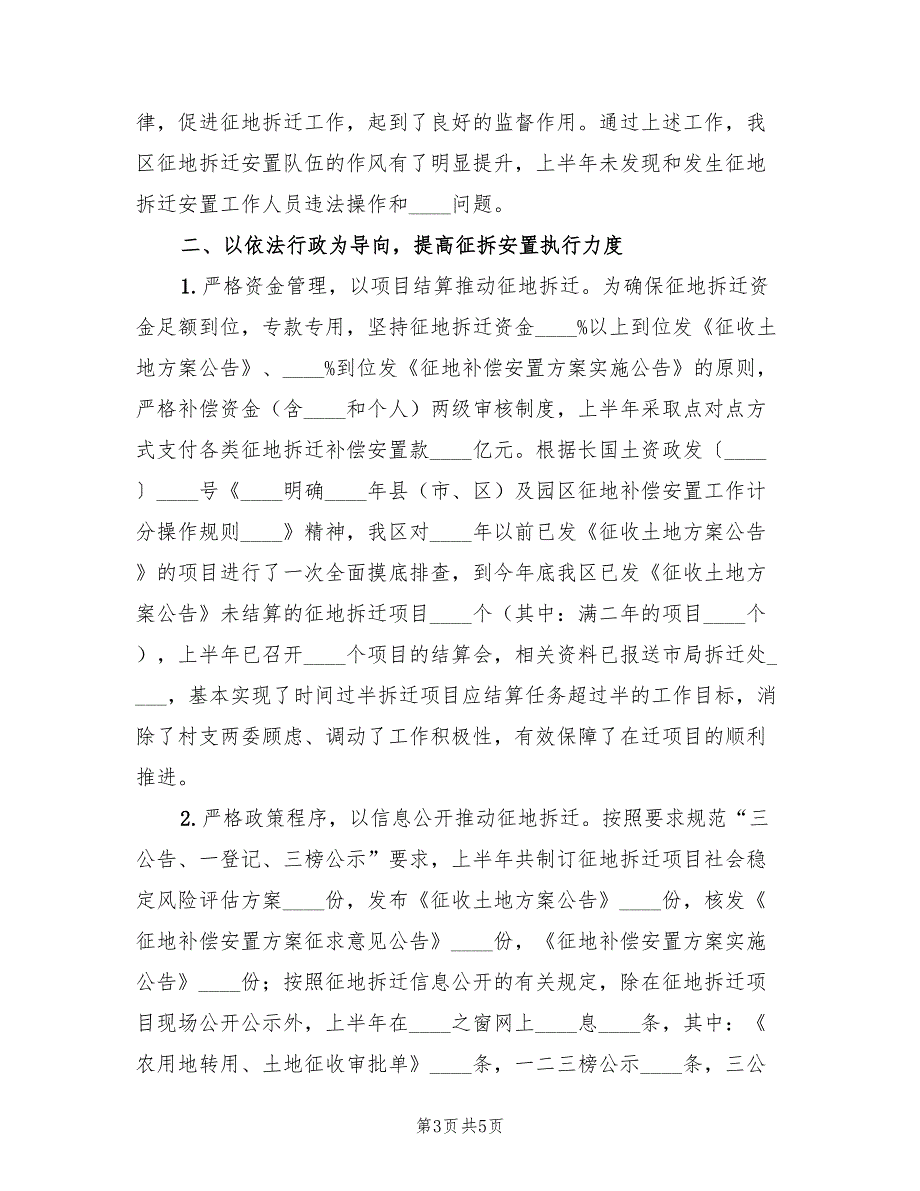 律，促进征地拆迁工作，起到了良好的监督作用。通过上述工作，我
区征地拆迁安置队伍的作风有了明显提升，上半年未发现和发生征地
拆迁安置工作人员违法操作和____问题。
二、以依法行政为导向，提高征拆安置执行力度
1.严格资金管理，以项目结算推动征地拆迁。为确保征地拆迁资
金足额到位，专款专用，坚持征地拆迁资金____%以上到位发《征收土
地方案公告》、____%到位发《征地补偿安置方案实施公告》的原则，
严格补偿资金（含____和个人）两级审核制度，上半年采取点对点方
式支付各类征地拆迁补偿安置款____亿元。根据长国土资政发〔____
〕____号《____明确____年县（市、区）及园区征地补偿安置工作计
分操作规则____》精神，我区对____年以前已发《征收土地方案公告
》的项目进行了一次全面摸底排查，到今年底我区已发《征收土地方
案公告》未结算的征地拆迁项目____个（其中：满二年的项目____个
），上半年已召开____个项目的结算会，相关资料已报送市局拆迁处_
___，基本实现了时间过半拆迁项目应结算任务超过半的工作目标，消
除了村支两委顾虑、调动了工作积极性，有效保障了在迁项目的顺利
推进。
2.严格政策程序，以信息公开推动征地拆迁。按照要求规范“三
公告、一登记、三榜公示”要求，上半年共制订征地拆迁项目社会稳
定风险评估方案____份，发布《征收土地方案公告》____份，核发《
征地补偿安置方案征求意见公告》____份，《征地补偿安置方案实施
公告》____份；按照征地拆迁信息公开的有关规定，除在征地拆迁项
目现场公开公示外，上半年在____之窗网上____息____条，其中：《
农用地转用、土地征收审批单》____条，一二三榜公示____条，三公
第3页共5页